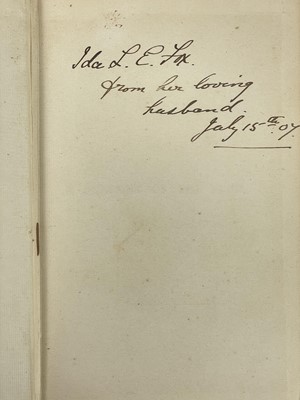 Ida L. E. Fox.
from her loving
husband.
July 15th. 07.